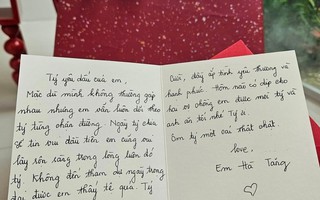 Tỷ yêu dấu của em,
Mặc dù mình không thường gặp
nhau nhưng em vẫn luôn dõi theo
tỷ từng chặn đường. Ngày tỷ chia
sẻ tin vui đầu tiên em cũng vui
lây rộn ràng trong lòng luôn đó
tỷ. Không đến tham dự ngày trọng
đại được em thấy tệ quá. Tỷ
Cưới, đầy ắp tình yêu thương và
hạnh phúc. Hôm nào có dịp cho
hai vợ chồng em được mời tỷ và
anh ăn tối nhé Tỷ
Em tỷ một cái thật chặt.
love,
Em Hà Tăng